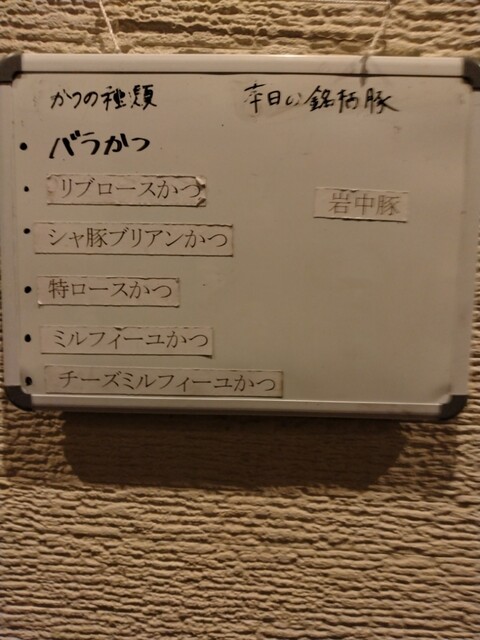 かつの種類
本日の銘柄豚
バラかつ
リブロースかつ
岩中豚
シャ豚ブリアンかつ
特ロースかつ
ミルフィーユかつ
チーズミルフィーユかつ